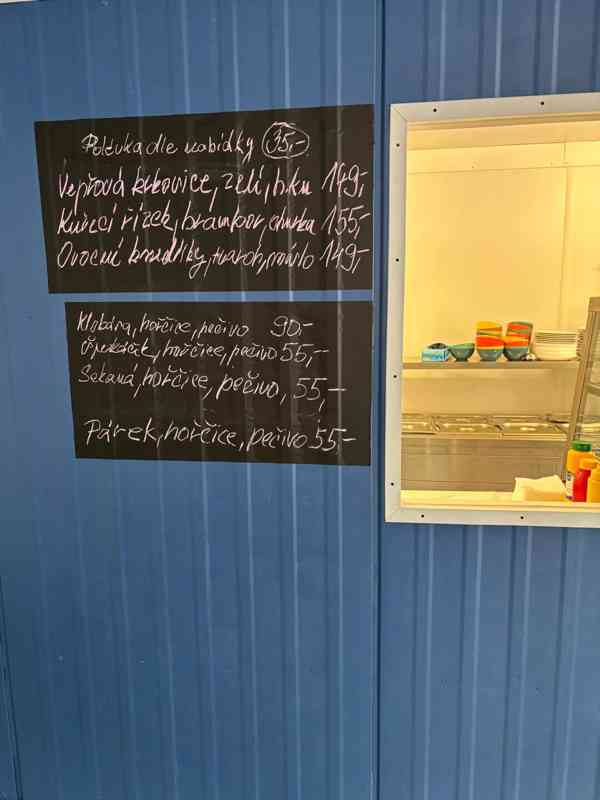 Polévka dle nabídky 35,-
Vepřová krkovice, zelí, h.kn 149,-
Kuřecí řízek, brambor, okurka 155,-
Ovocné knedlíky, tvaroh, máslo 149,-
Klobása, hořčice, pečivo 90.-
Špekáček, hořčice, pečivo 55,-
Sekaná, hořčice, pečivo, 55,-
Párek, hořčice, pečivo 55,-